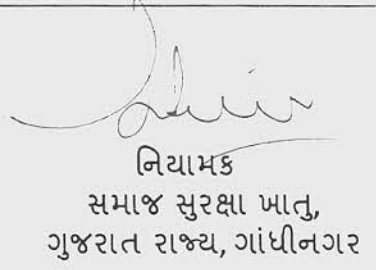 નિયામક
સમાજ સુરક્ષા ખાતુ,
ગુજરાત રાજ્ય, ગાંધીનગર